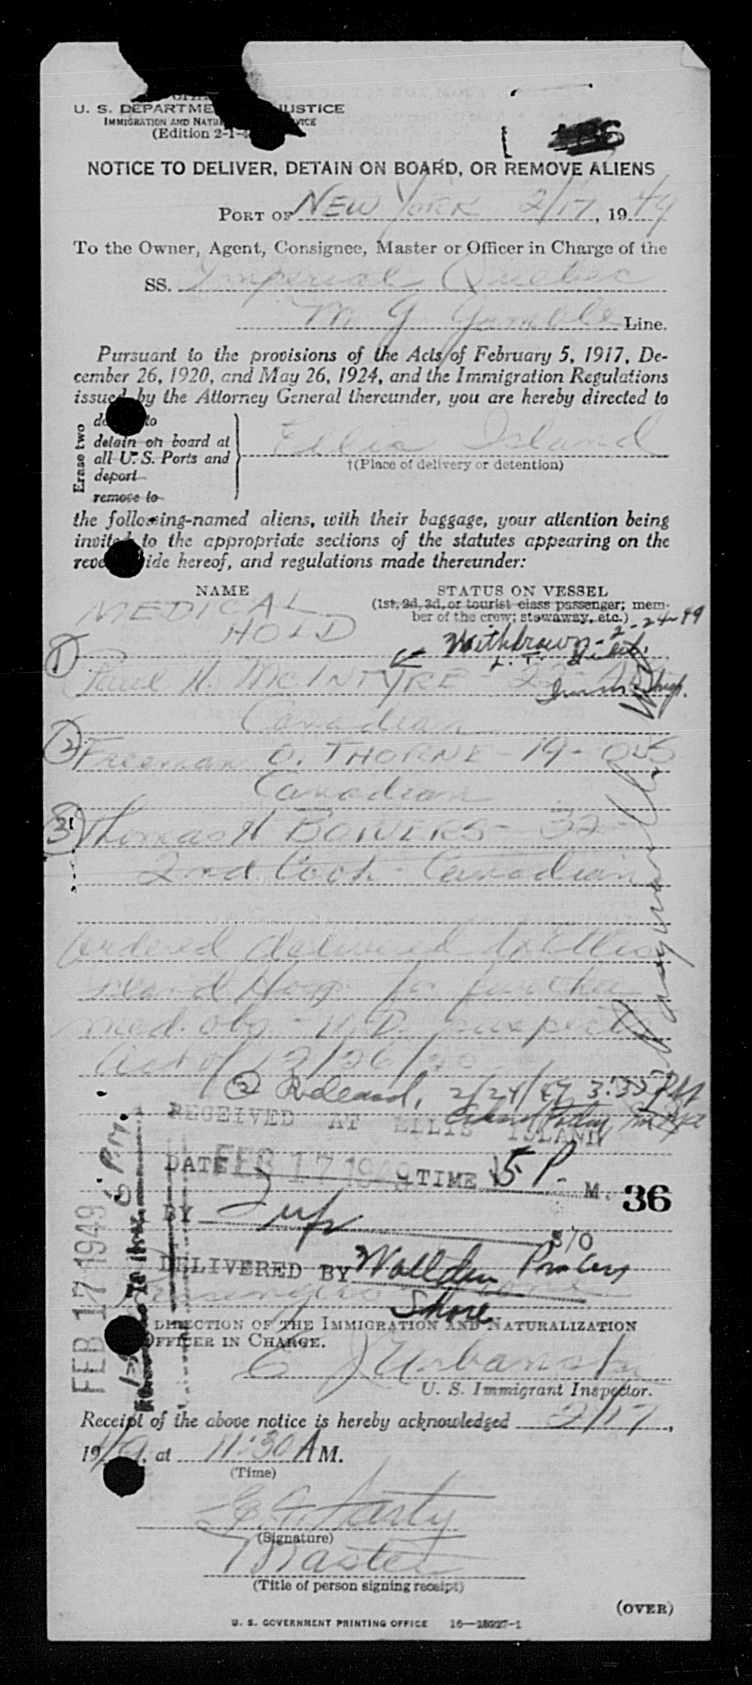 U. S. DEPARTME JUSTICE
IMMIGRATION AND NATU ICE
(Edition 2-1-
NOTICE TO DELIVER, DETAIN ON BOARD, OR REMOVE ALIENS
PORT OF NEW YORK 2/17, 1949
To the Owner, Agent, Consignee, Master or Officer in Charge of the
SS. Imperial Quebec
M. J. Gamble Line.
Pursuant to the provisions of the Acts of February 5, 1917, De-
cember 26, 1920, and May 26, 1924, and the Immigration Regulations
issued by the Attorney General thereunder, you are hereby directed to
Erase two
de to
detain on board at
all U. S. Ports and
deport
remove to
Ellis Island
†(Place of delivery or detention)
the following-named aliens, with their baggage, your attention being
invited to the appropriate sections of the statutes appearing on the
reve ide hereof, and regulations made thereunder:
NAME STATUS ON VESSEL
(1st, 2d, 3d, or tourist class passenger; mem-
ber of the crew; stowaway, etc.)
MEDICAL
HOLD
Withdrawn 2-24-49
1 Paul H. McINTYRE
Canadian
2 Freeman O. THORNE - 19 - OUS
Canadian
3 Thomas H BOWERS - 32
2nd Cook - Canadian
ordered delivered to Ellis
Island Hosp for further
med. obs - V.D. suspects
Act of 12/26/20
② Released, 2/24/49 3:35 PM
RECEIVED AT ELLIS ISLAND
DATE FEB 17 1949 TIME 5 P. M.
36
BY
S/O
DELIVERED BY
FEB 17 1949
DIRECTION OF THE IMMIGRATION AND NATURALIZATION
OFFICER IN CHARGE.
U. S. Immigrant Inspector.
Receipt of the above notice is hereby acknowledged 2/17,
1949. at 11:30 A M.
(Time)
(Signature)
Master
(Title of person signing receipt)
(OVER)
U. S. GOVERNMENT PRINTING OFFICE 16—18927-1